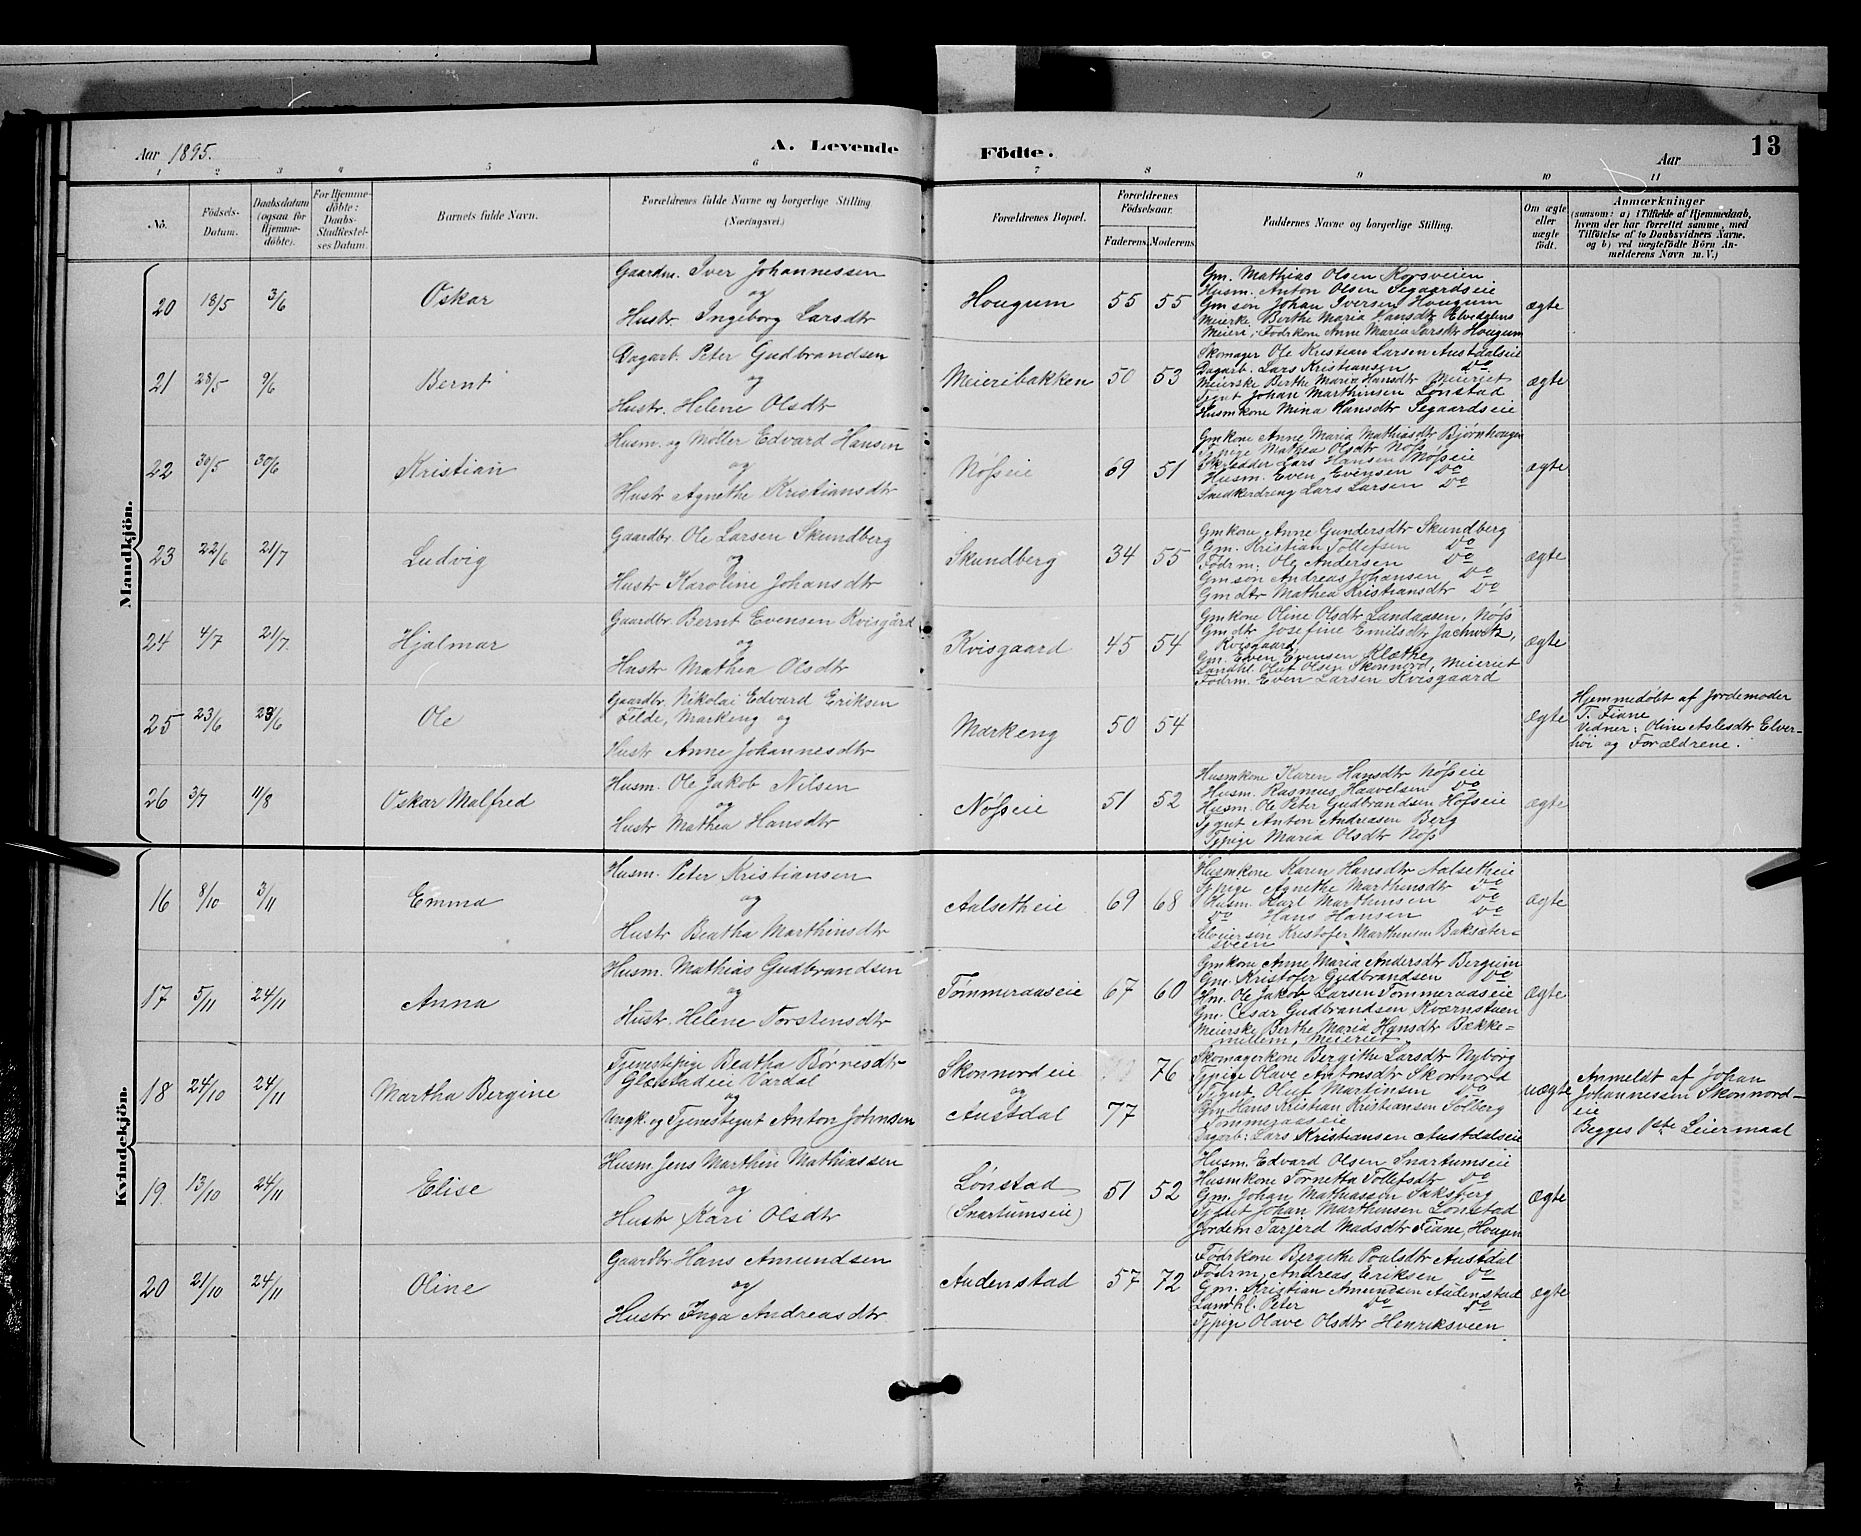 Aar 1895.
A. Levende
Födte.
Aar
13
1 2 3 4 5 6 7 8 9 10 11
No.
Födsels-Datum.
Daabsdatum (ogsaa for Hjemme-döbte).
For Hjemme-döbte: Daabs-Stadfæstel-ses Datum.
Barnets fulde Navn.
Forældrenes fulde Navne og borgerlige Stilling (Næringsvei.)
Forældrenes Bopæl.
Forældrenes Födselsaar.
Faderens.
Moderens.
Faddernes Navne og borgerlige Stilling.
Om ægte eller uægte födt.
Anmærkninger
(saasom: a) i Tilfælde af Hjemmedaab,
hvem der har forrettet samme, med
Tilföielse af to Daabsvidners Navne.
og b) ved uægtefödte Börn An-
melderens Navn m. V.)
Mandkjön.
20 18/5 3/6 Oskar
Gaardm. Iver Johannessen
og
Hustr. Ingeborg Larsdtr
Hougum 55 55
Gm. Mathias Olsen Korsveien
Husm. Anton Olsen Segaardseie
Gmsøn Johan Iversen Hougum
Meierske Berthe Maria Hansdtr
Meieri, Fødrkone Anne Maria Larsdtr Hougum
ægte
21 28/5 9/6 Bernt
Dagarb. Peter Gudbrandsen
og
Hustr. Helene Olsdtr
Meieribakken 50 53
Skomager Ole Kristian Larsen Austdalseie
Dagarb. Lars Kristiansen Do
Meierske Berthe Maria Hansdtr Meieriet
Tjgut Johan Marthinsen Lønstad
Husmkone Mina Hansdtr Segaardseie
ægte
22 30/5 30/6 Kristian
Husm. og Møller Edvard Hansen
og
Hustr Agnethe Kristiansdtr
Nøfseie 69 51
Gmkone Anne Maria Mathiasdtr Bjørnhougen
Tjpige Mathea Olsdtr Nøfs
Skrædder Lars Hansen Nøfseie
Husm. Even Evensen Do
Snedkerdreng Lars Larsen Do
ægte
23 22/6 21/7 Ludvig
Gaardbr. Ole Larsen Skundberg
og
Hustr Karoline Johansdtr
Skundberg 34 55
Gmkone Anne Gundersdtr Skundberg
Gm. Kristian Tollefsen Do
Fødrm: Ole Andersen Do
Gmsøn Andreas Johansen Do
Gmdtr Mathea Kristiansdtr Do
ægte
24 4/7 21/7 Hjalmar
Gaardbr. Bernt Evensen Kvisgård
og
Hustr Mathea Olsdtr
Kvisgaard 45 54
Gmkone Oline Olsdtr Landaasen, Nøfs
Gmdtr Josefine Emilsdtr Jachwitz,
Kvisgaard
Gm. Even Evensen Kløthe
Landhl. Oluf Olsen Skonnord, Meieriet
Fødrm. Even Larsen Kvisgaard
ægte
25 23/6 23/6 Ole
Gaardbr. Nikolai Edvard Eriksen
Felde, Markeng og
Hustr Anne Johannesdtr
Markeng 50 54
ægte
Hjemmedøbt af Jordemoder
T. Fiane
Vidner: Oline Aslesdtr Elver-
høi og Forældrene.
26 3/7 11/8 Oskar Malfred
Husm. Ole Jakob Nilsen
og
Hustr Mathea Hansdtr
Nøfseie 51 52
Husmkone Karen Hansdtr Nøfseie
Husm. Rasmus Haavelsen Do
Husm. Ole Peter Gudbrandsen Hofseie
Tjgut Anton Andreasen Berg
Tjpige Maria Olsdtr Nøfs
ægte
Kvindekjön.
16 8/10 3/11 Emma
Husm. Peter Kristiansen
og
Hustr Beatha Marthinsdtr
Aalsetheie 69 68
Husmkone Karen Hansdtr Aalsetheie
Tjpige Agnethe Marthinsdtr Do
Husm. Karl Marthinsen Do
Do Hans Hansen Do
Selveiersøn Kristofer Marthinsen Baksæter-
sveen
ægte
17 5/11 24/11 Anna
Husm. Mathias Gudbrandsen
og
Hustr. Helene Torstensdtr
Tømmeraaseie 67 60
Gmkone Anne Maria Andersdtr Bergum
Gm. Kristofer Gudbrandsen Do
Hm. Ole Jakob Larsen Tømmeraaseie
Gm. Cesar Gudbrandsen Kværnstuen
Meierske Berthe Maria Hansdtr Bække-
mellem, Meieriet
ægte
18 24/10 24/11 Martha Bergine
Tjenestepige Beatha Børresdtr
Glæstadeie Vardal
og
Ungk. og Tjenestegut Anton Johnsen
Skonnordeie 76
og
Austdal 77
Skomagerkone Bergithe Larsdtr Nyborg
Tjpige Olave Antonsdtr Skonnord
Tjgut Oluf Martinsen Do
Hans Kristian Kristiansen Solberg
Tømmeraaseie
Dagarb: Lars Kristiansen Austdalseie
uægte
Anmeldt af Johan
Johannessen Skonnord-
eie
Begges 1ste Leiermaal
19. 13/10 24/11 Elise
Husm. Jens Marthin Mathiassen
og
Hustr Kari Olsdtr
Lønstad
(Snartumseie) 51 52
Husm. Edvard Olsen Snartumseie
Husmkone Tornetta Tollefsdtr Do
Gm. Johan Mathiassen Saksberg
Johan Marthinsen Lønstad
Jordem Tarjerd Madsdtr Fiane, Hougen
ægte
20 21/10 24/11 Oline
Gaardbr. Hans Amundsen
og
Hustr Inga Andreasdtr.
Audenstad 57 72
Fødrkone Bergithe Poulsdtr Austdal
Fødrm. Andreas Eriksen Do
Gm. Kristian Amundsen Audenstad
Landhl. Peter Do Do
Tjpige Olave Olsdtr Henriksveen
ægte